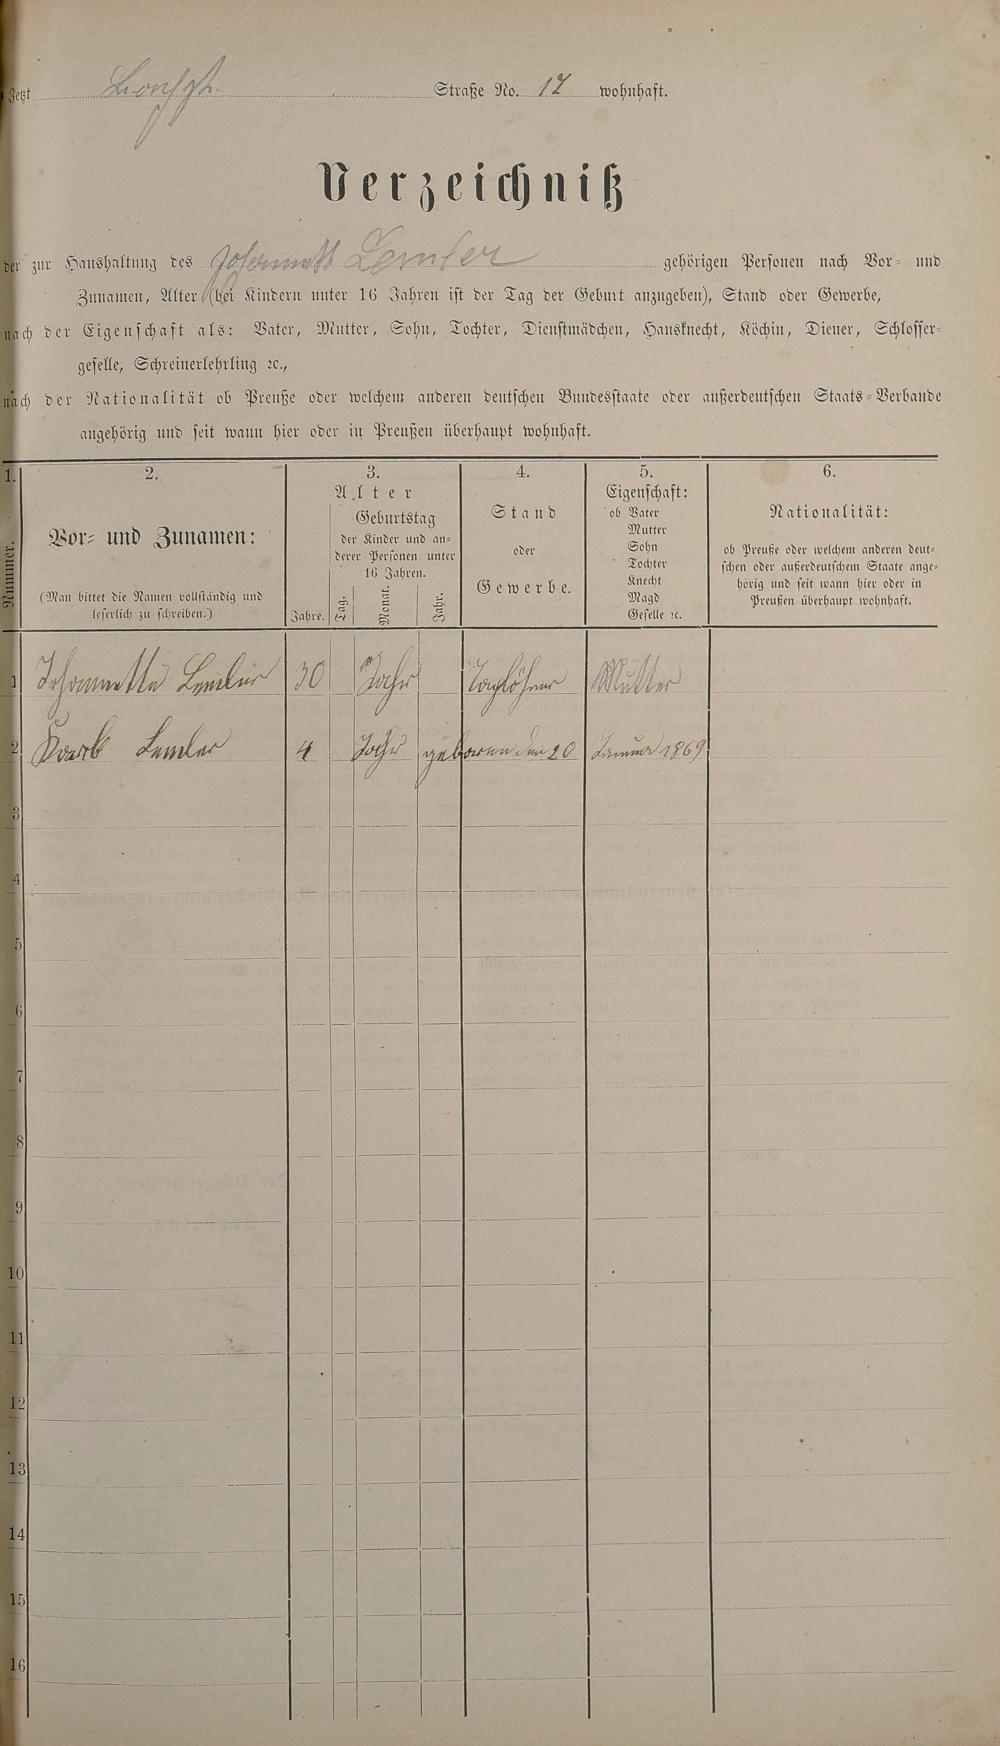 Jetzt Straße No. 17 wohnhaft.
Verzeichniß
der zur Haushaltung des Johannette Lemler gehörigen Personen nach Vor- und
Zunamen, Alter (bei Kindern unter 16 Jahren ist der Tag der Geburt anzugeben), Stand oder Gewerbe,
nach der Eigenschaft als: Vater, Mutter, Sohn, Tochter, Dienstmädchen, Hausknecht, Köchin, Diener, Schlosser-
geselle, Schreinerlehrling ꝛc.,
nach der Nationalität ob Preuße oder welchem anderen deutschen Bundesstaate oder außerdeutschen Staats-Verbande
angehörig und seit wann hier oder in Preußen überhaupt wohnhaft.
1.
Nummer.
2.
Vor- und Zunamen:
(Man bittet die Namen vollständig und
leserlich zu schreiben.)
3.
Alter
Geburtstag
der Kinder und an-
derer Personen unter
16 Jahren.
Jahre. Tag. Monat. Jahr.
4.
Stand
oder
Gewerbe.
5.
Eigenschaft:
ob Vater
Mutter
Sohn
Tochter
Knecht
Magd
Geselle ꝛc.
6.
Nationalität:
ob Preuße oder welchem anderen deut-
schen oder außerdeutschem Staate ange-
hörig und seit wann hier oder in
Preußen überhaupt wohnhaft.
1 Johannette Lemler 30 Jahr Taglöhner Mutter
2 Karl Lemler 4 Jahr geboren den 20 Januar 1869
3
4
5
6
7
8
9
10
11
12
13
14
15
16